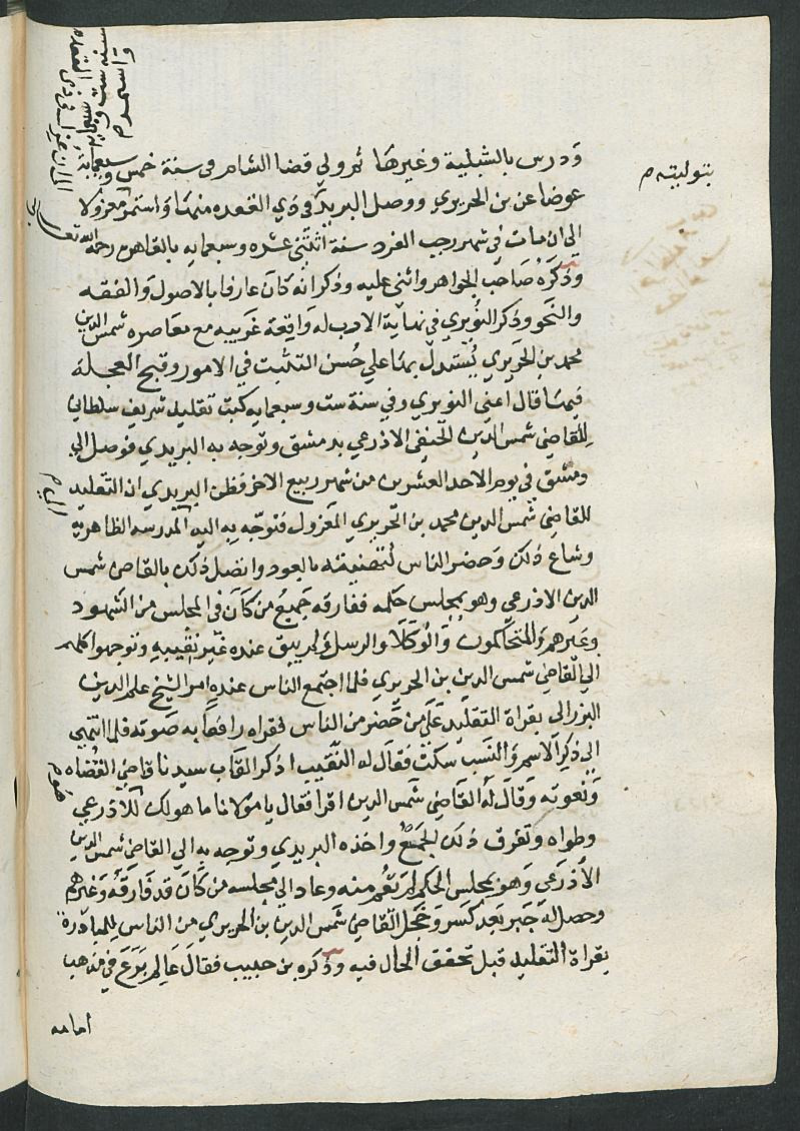 ودرس بالشبلية وغيرها ثم ولي قضا الشام في سنة خمس وسبعماية
بتوليته م
عوضا عن بن الحريري ووصل البريد في ذي القعده منها واستمر معزولا
الى ان مات في شهر رجب الفرد سنة اثنتي عشره وسبعمايه بالقاهره رحمه الله تعالى
وذكره صاحب الجواهر واثنى عليه وذكر انه كان عارفا بالاصول والفقه
والنحو وذكر النويري في نهاية الادب له واقعة غريبه مع معاصره شمس الدين
محمد بن الحريري يستدل بها علي حسن التثبت في الامور وقبح العجله
فيها قال اعني النويري وفي سنة ست وسبعمايه كتبت تقليد شريف سلطاني
للقاضي شمس الدين الحنفي الاذرعي بدمشق وتوجه به البريدي فوصل الي
دمشق في يوم الاحد العشرين من شهر ربيع الاخر فظن البريدي ان التقليد
للقاضي شمس الدين محمد بن الحريري المعزول فتوجه به اليه المدرسه الظاهرية
الي م
وشاع ذلك وحضر الناس لتهنيته بالعود واتصل ذلك بالقاضي شمس
الدين الاذرعي وهو بمجلس حكمه ففارقه جميع من كان في المجلس من الشهود
وغيرهم والمتحاكمون والوكلا والرسل ولم يبق عنده غير نقيبه وتوجهوا كلهم
الي القاضي شمس الدين بن الحريري فلما اجتمع الناس عنده امر الشيخ علم الدين
البرزالى بقراة التقليد علي من حضر من الناس فقراه رافعا به صوته فلما انتهي
الي ذكر الاسم والنسب سكت فقال له النقيب اذكر القاب سيدنا قاضي القضاه
ونعوته وقال له القاضي شمس الدين اقرا فقال يا مولانا ما هو لك للاذرعي
وطواه وتفرق ذلك الجمع واخذه البريدي وتوجه به الي القاضي شمس الدين
الاذرعي وهو بمجلس الحكم لم يقم منه وعاد الي مجلسه من كان قد فارقه وغيرهم
وحصل له جبر بعد كسر وخجل القاضي شمس الدين بن الحريري من الناس للمبادرة
بقراة التقليد قبل تحقق الحال فيه وذكره بن حبيب فقال عالم برع في مذهب
امامه